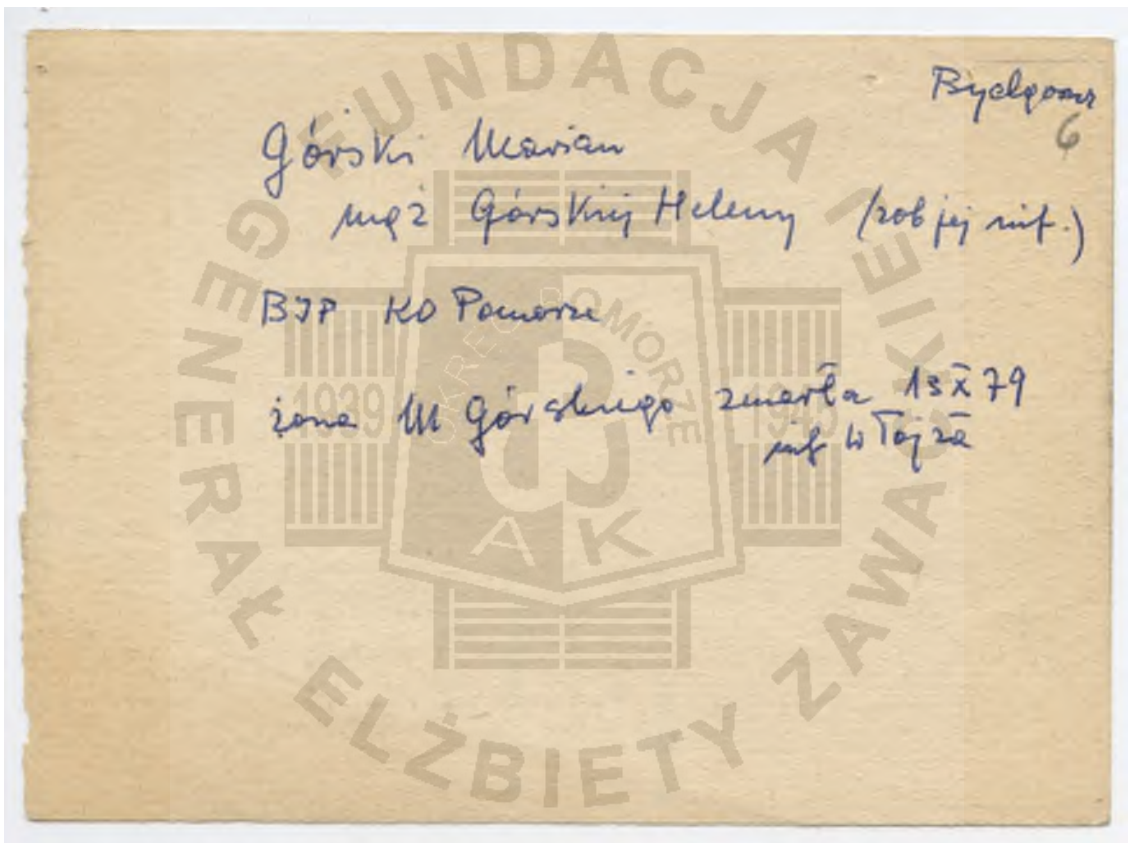 Bydgoszcz
6
Górski Marian
mąż Górskiej Heleny (zob jej inf.)
BIP KO Pomorze
żona M Górskiego zmarła 13 X 79
inf W
FUNDACJA GENERAŁ ELŻBIETY ZAWACKIEJ
OKRĘG POMORZE
1939 1945
AK